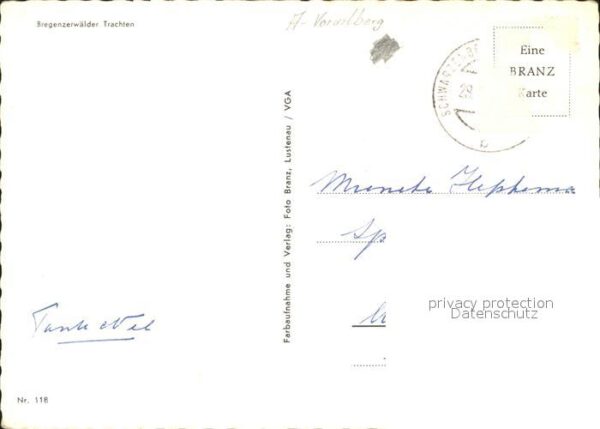 Bregenzerwälder Trachten
A-Vorarlberg
SCHWARZENBE
29.
b
Eine
BRANZ
Karte
Farbaufnahme und Verlag: Foto Branz, Lustenau / VGA
Sp
privacy protection
Datenschutz
Tante
Nr. 118